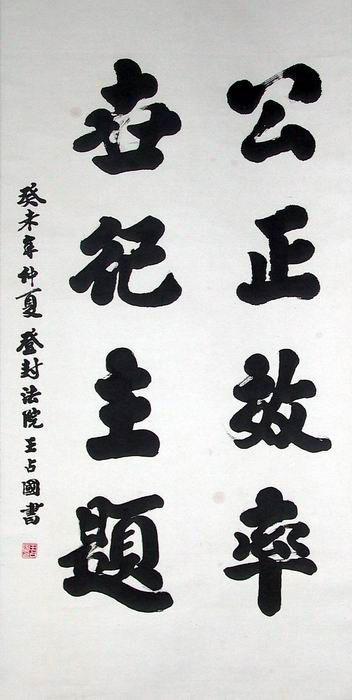 公正效率
世纪主题
癸未年仲夏登封法院王占國書